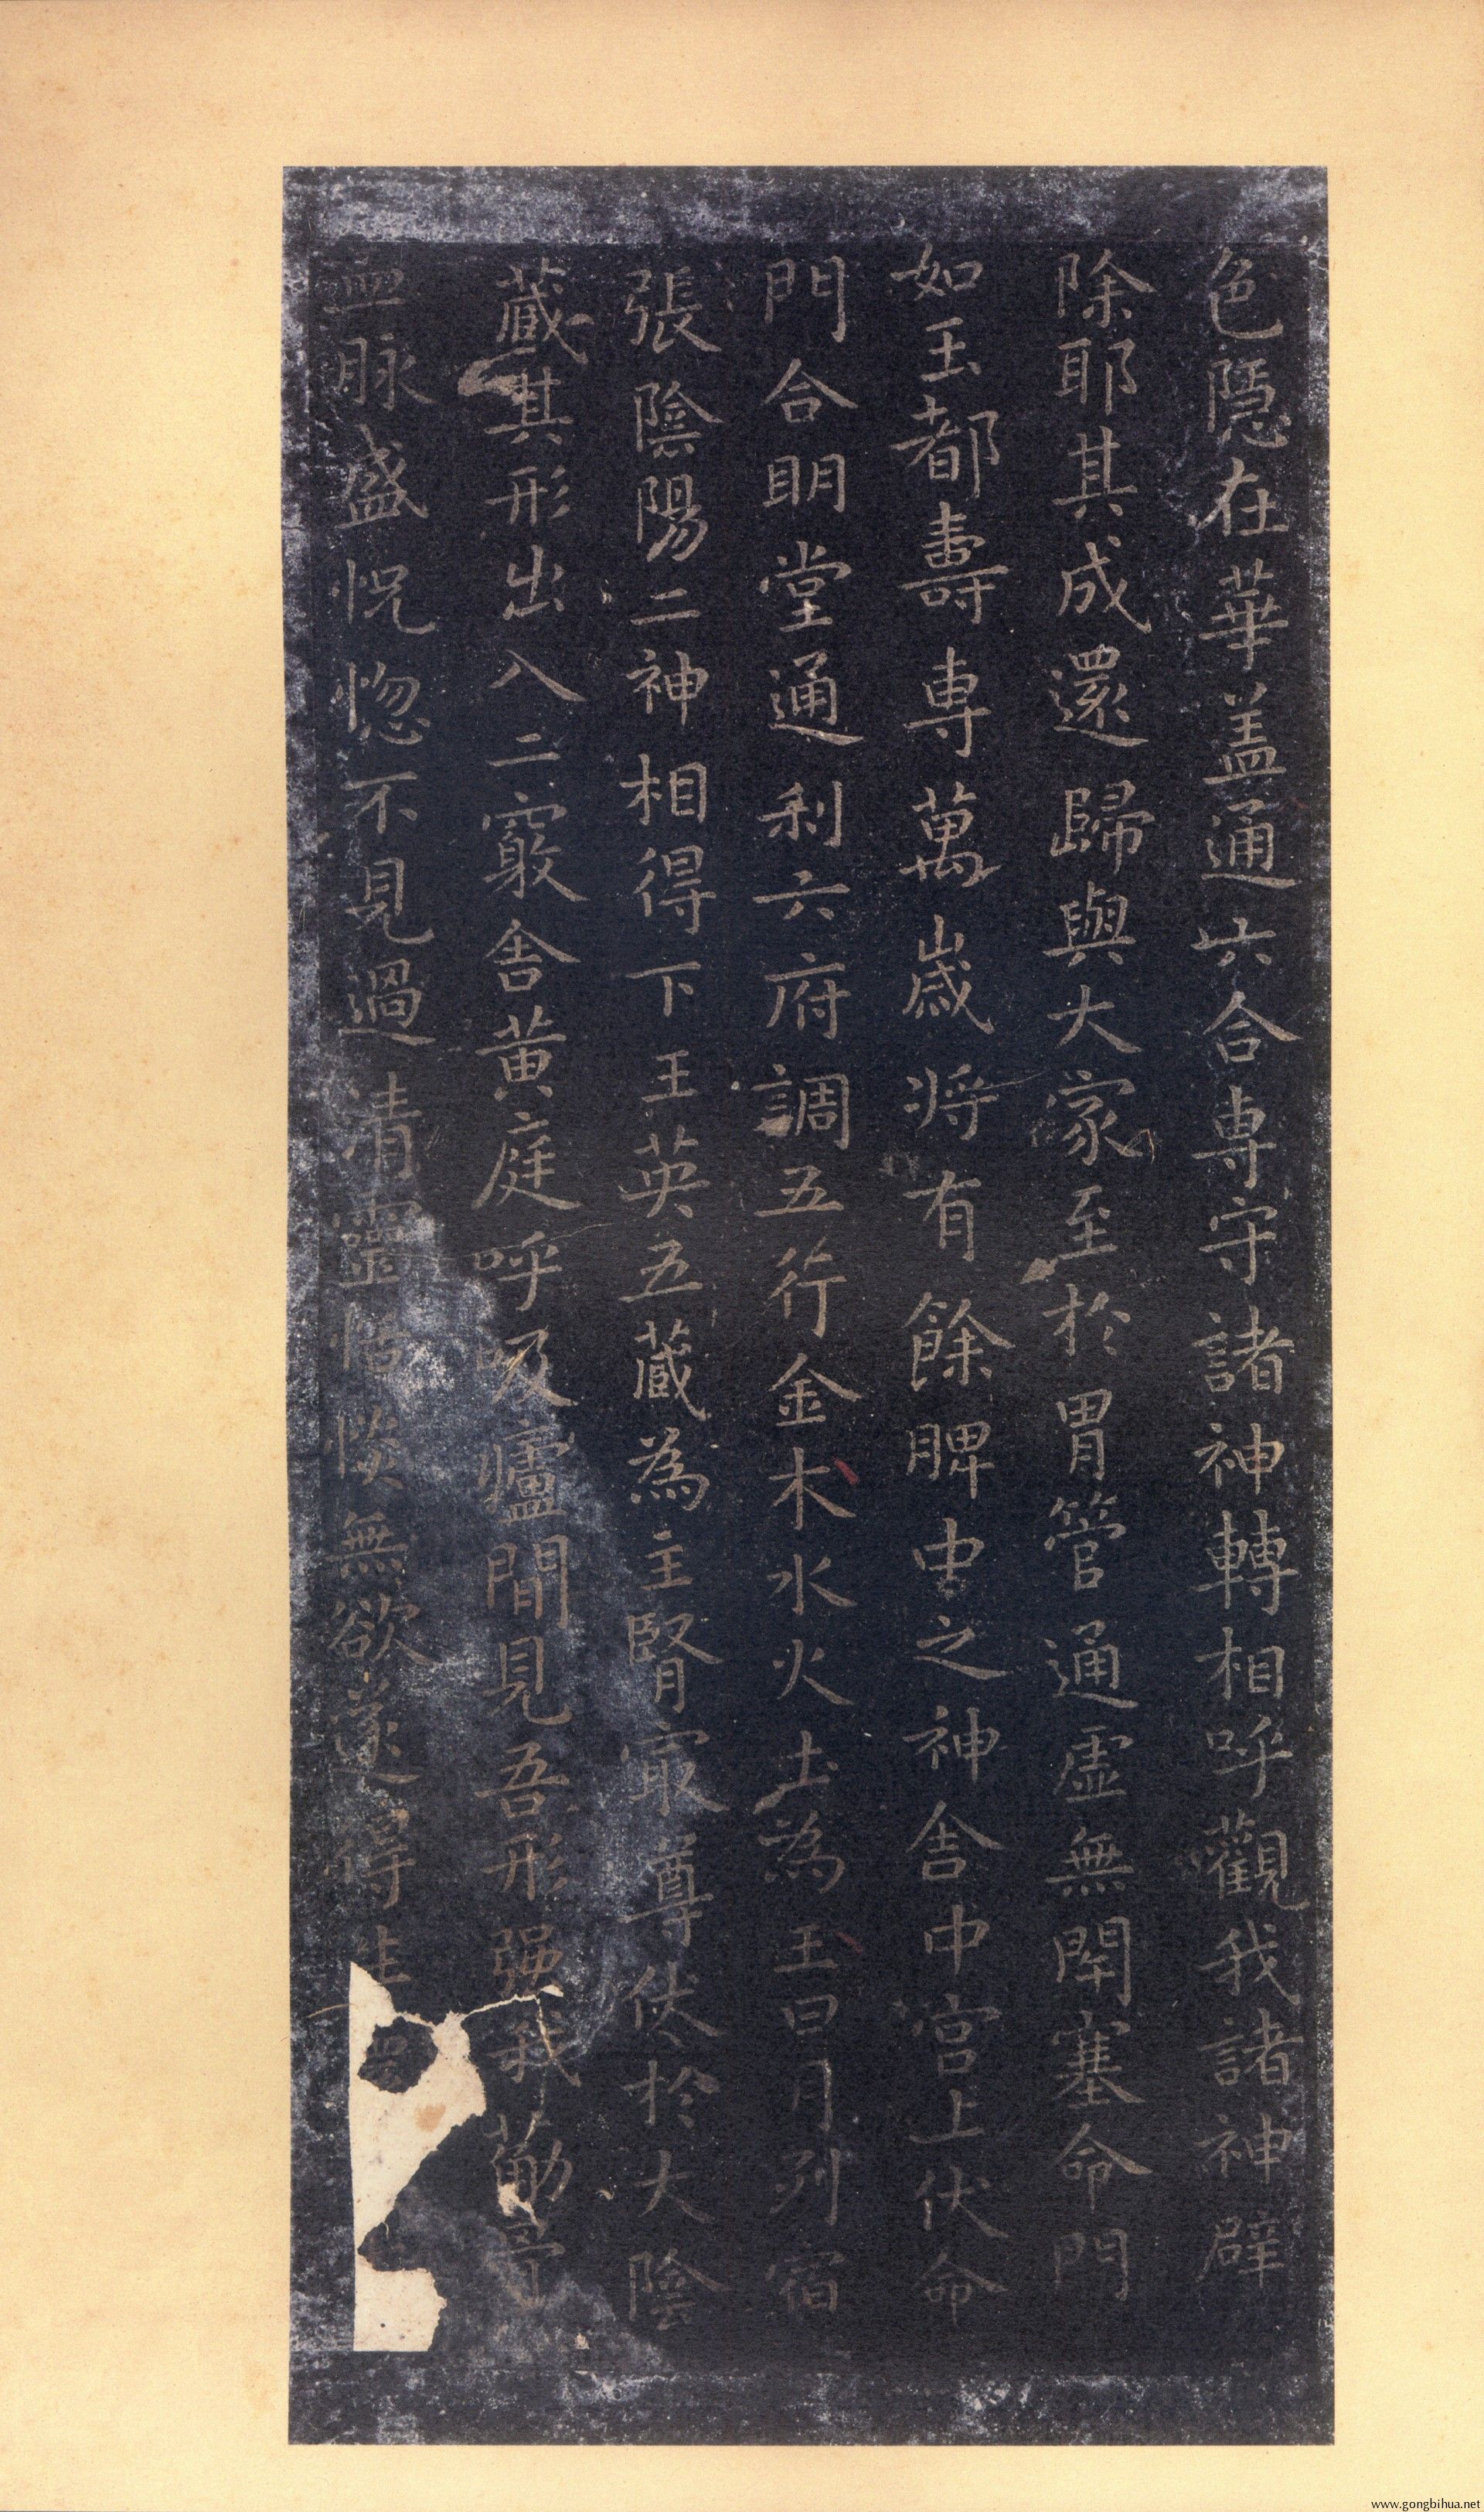 色隱在華盖通六合専守諸神轉相呼觀我諸神辟
除耶其成還歸與大家至於胃管通虚無閉塞命門
如玉都壽専萬歲将有餘脾中之神舎中宮上伏命
門合明堂通利六府調五行金木水火土為王日月列宿
張陰陽二神相得下王英五蔵為主腎寂尊伏於大陰
蔵其形出入二竅舎黄庭呼吸廬間見吾形强我萠
血脉盛怳惚不見過清靈恬惔無欲遂得生
www.gongbihua.net